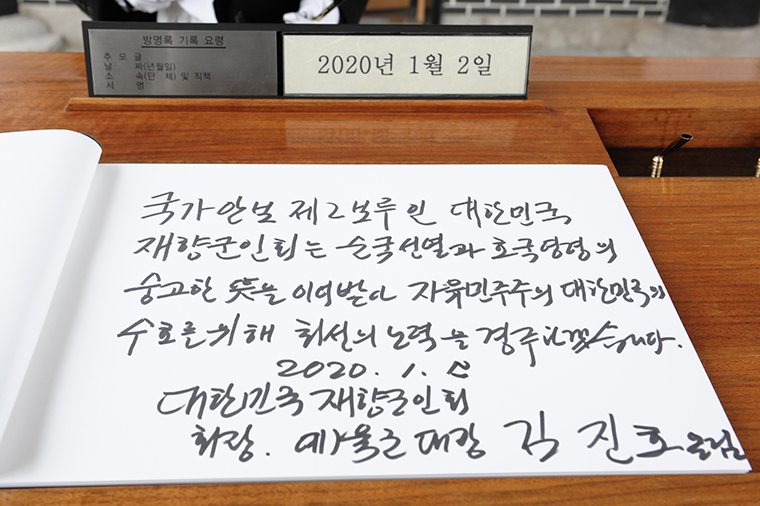 방명록 기록 요령
추 모 글
날 짜(년월일)
소 속(단 체) 및 직책
서 명
2020년 1월 2일
국가안보 제2보루인 대한민국
재향군인회는 순국선열과 호국영령의
숭고한 뜻을 이어받아 자유민주주의 대한민국의
수호를 위해 최선의 노력을 경주하겠습니다.
2020. 1. 2
대한민국 재향군인회
회장. 예)육군대장 김진호 올림